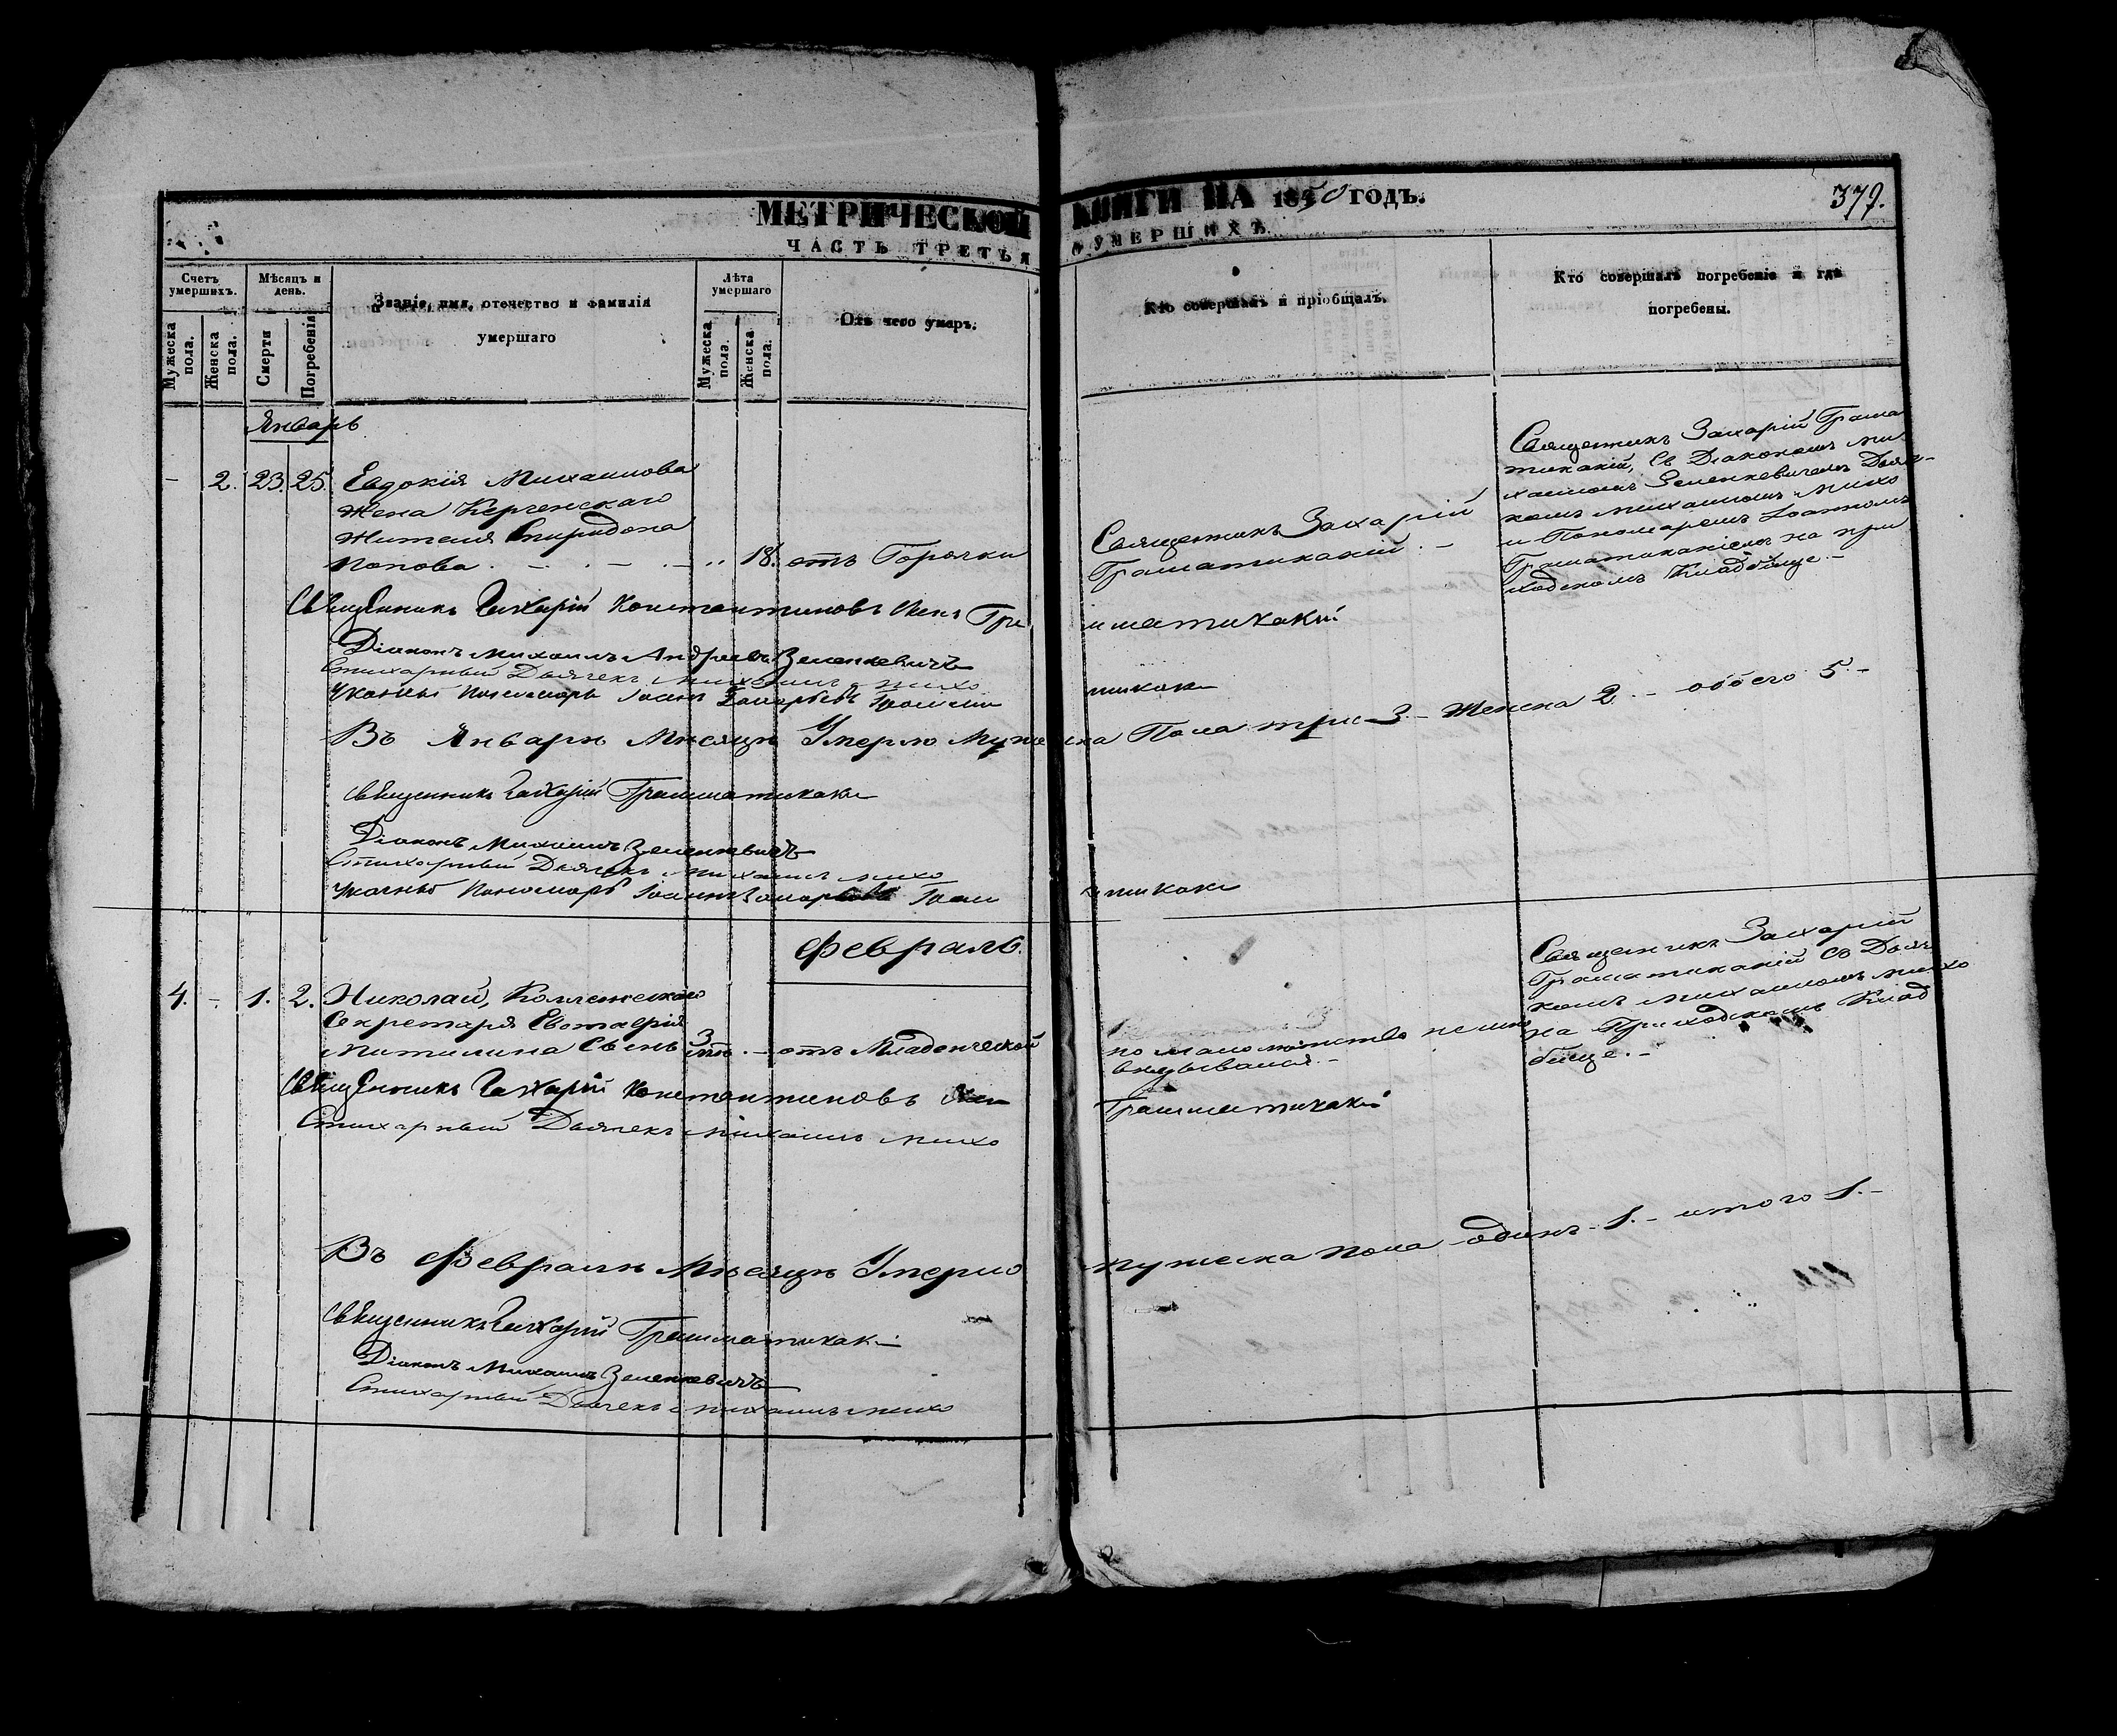 МЕТРИЧЕСКОЙ КНИГИ НА 1850 ГОДЪ.
379.
ЧАСТЬ ТРЕТЬЯ О УМЕРШИХЪ.
Счетъ умершихъ.
Мужеска пола.
Женска пола.
Мѣсяцъ и день.
Смерти
Погребенія
Званіе, имя, отечество и фамилія
умершаго
Лѣта умершаго
Мужеска пола.
Женска пола.
Отъ чего умеръ.
Кто совершалъ и пріобщалъ.
Кто совершалъ погребеніе и гдѣ
погребены.
Январь
- 2. 23. 25. Евдокія Михаилова
жена Керченскаго
жителя Спиридона
Попова . - . - . - 18. отъ Горячки
Священникъ Захарій
Граматикакій. -
Священникъ Захарій Грама
тикакій, съ Діакономъ Ми
хаиломъ Зеленкевичемъ Дьяч-
комъ Михаиломъ Михо
и Пономаремъ Іоанномъ
Граматикакіемъ на при
ходскомъ Кладбище. -
Священникъ Захарій Константиновъ Грамматикакій
Діаконъ Михаилъ Андреевъ Зеленкевичъ
Стихарный Дьячекъ Михаилъ Михо
Указный Пономарь Іоаннъ Захарьевъ Грамматикаки
Въ Январѣ Мѣсяцѣ Умерло Мужеска Пола три 3 - Женска 2. - обоего 5. -
Священникъ Захарій Грамматикаки
Діаконъ Михаилъ Зеленкевичъ
Стихарный Дьячекъ Михаилъ Михо
Указный Пономарь Іоаннъ Захарьевъ Грамматикаки
Февраль.
4. - 1. 2. Николай, Коллежскаго
Секретаря Евстафія
Митилина Сынъ 3 лѣтъ. - отъ Младенческой
по малолѣтству не испо
вѣдывался. -
Священникъ Захарій
Граматикакій съ Дьяч
комъ Михаиломъ Михо
на Приходскомъ Клад
бище. -
Священникъ Захарій Константиновъ Грамматикакій
Стихарный Дьячекъ Михаилъ Михо
Въ Февралѣ Мѣсяцѣ Умерло мужеска пола одинъ - 1. - итого 1. -
Священникъ Захарій Грамматикаки
Діаконъ Михаилъ Зеленкевичъ
Стихарный Дьячекъ Михаилъ Михо